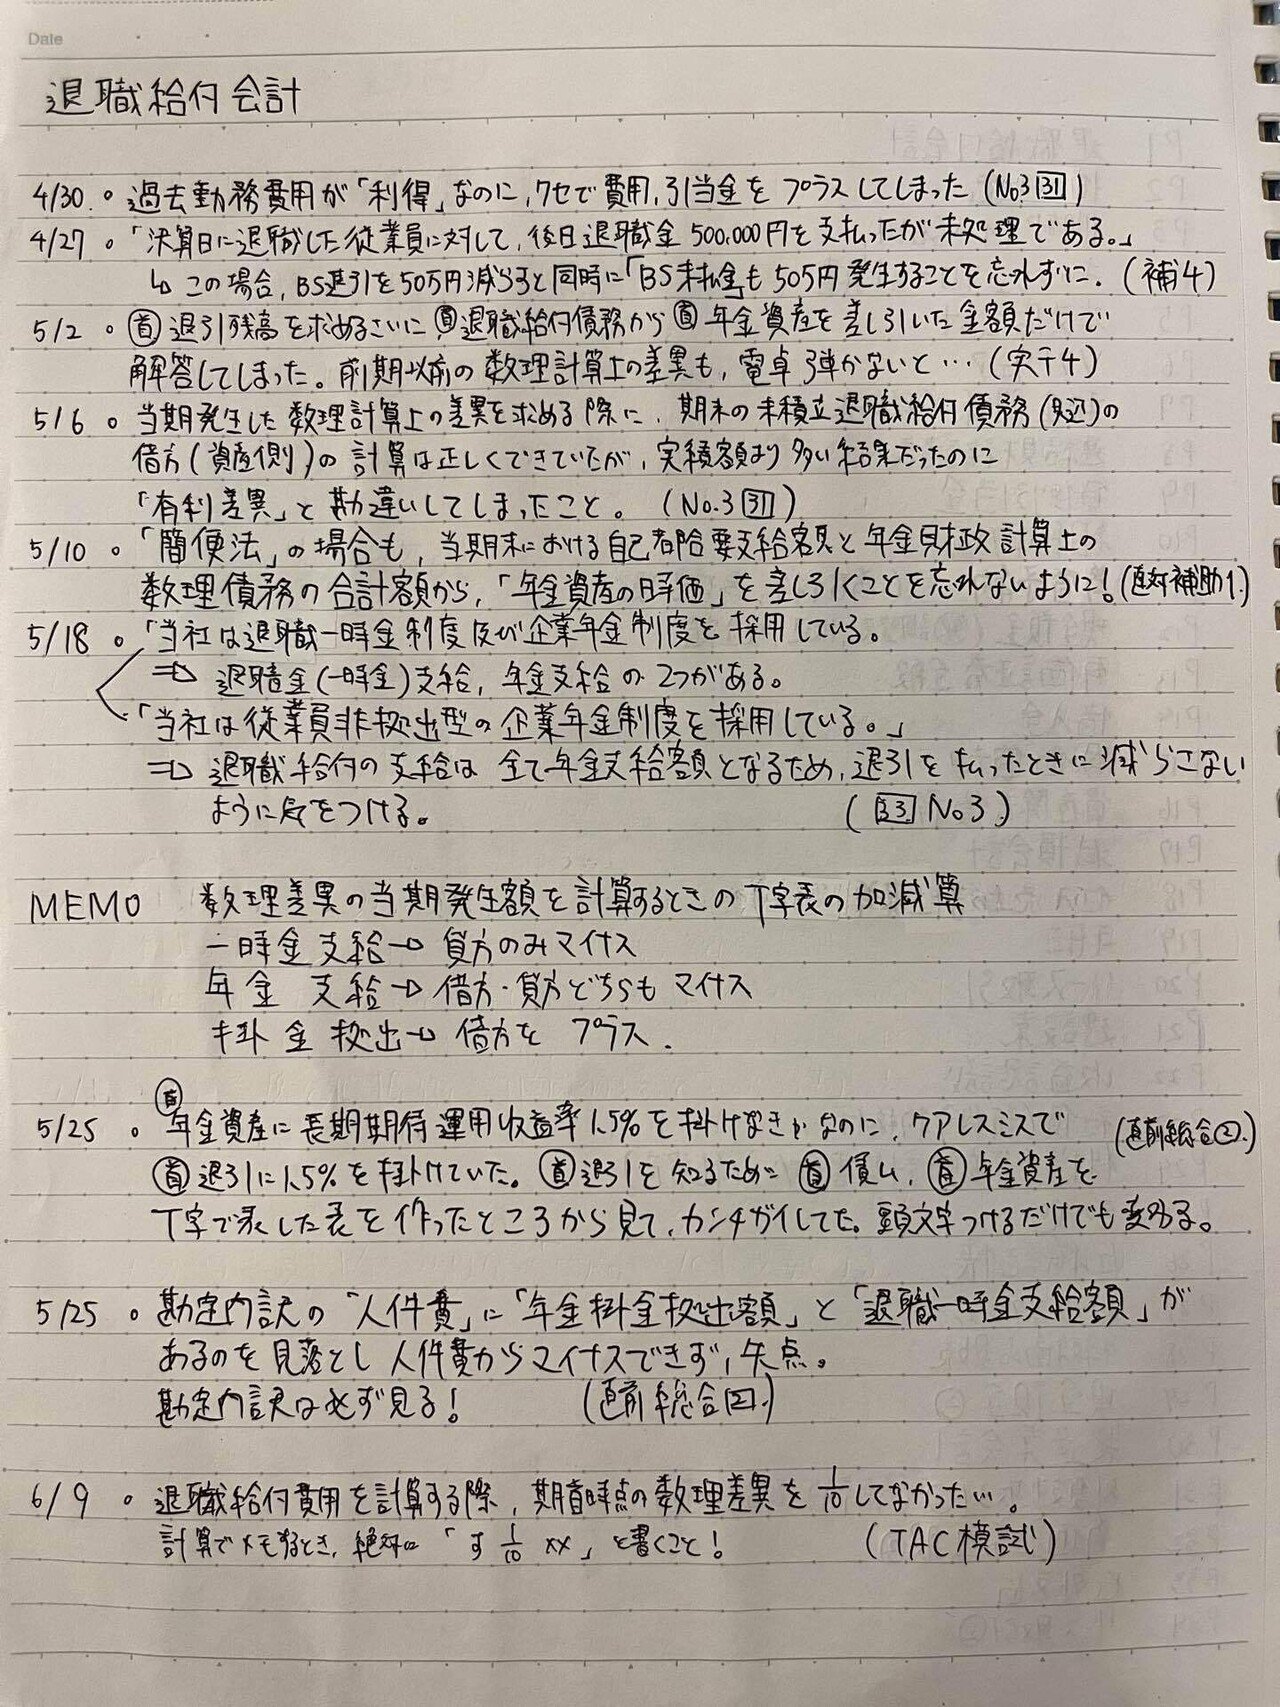 Date
退職給付会計
4/30 。過去勤務費用が「利得」なのに、クセで費用、引当金をプラスしてしまった (No3 31)
4/27 。「決算日に退職した従業員に対して、後日退職金500,000円を支払ったが未処理である。」
↳ この場合、BS退引を50万円減らすと同時に「BS未払金」も50万円発生することを忘れずに。(補4)
5/2 。首退引残高を求めるさいに首退職給付債務から首年金資産を差し引いた金額だけで
解答してしまった。前期以前の数理計算上の差異も、電卓弾かないと… (実テ4)
5/6 。当期発生した数理計算上の差異を求める際に、期末の未積立退職給付債務(見込)の
借方(資産側)の計算は正しくできていたが、実績額より多い結果だったのに
「有利差異」と勘違いしてしまったこと。 (No.3 31)
5/10 。「簡便法」の場合も、当期末における自己都合要支給額と年金財政計算上の
数理債務の合計額から、「年金資産の時価」を差し引くことを忘れないように! (直対補助1.)
5/18 。「当社は退職一時金制度及び企業年金制度を採用している。
⇒ 退職金(一時金)支給、年金支給の2つがある。
「当社は従業員非拠出型の企業年金制度を採用している。」
⇒ 退職給付の支給は全て年金支給額となるため、退引を払ったときに減らさない
ように気をつける。 (33 No3.)
MEMO 数理差異の当期発生額を計算するときのT字表の加減算
一時金支給→貸方のみマイナス
年金 支給→借方・貸方どちらもマイナス
掛金拠出→借方をプラス.
5/25 。首年金資産に長期期待運用収益率1.5%を掛けなきゃなのに、ケアレスミスで (直前総合②.)
首退引に1.5%を掛けていた。首退引を知るために首債ム、首年金資産を
T字で表した表を作ったところから見て、カンチガイしてた。頭文字つけるだけでも変わる。
5/25 。勘定内訳の「人件費」に「年金掛金拠出額」と「退職一時金支給額」が
あるのを見落とし人件費からマイナスできず、失点。
勘定内訳は必ず見る! (直前総合②.)
6/9 。退職給付費用を計算する際、期首時点の数理差異を1/10してなかった…。
計算でメモするとき、絶対に「す 1/10 ××」と書くこと! (TAC模試)